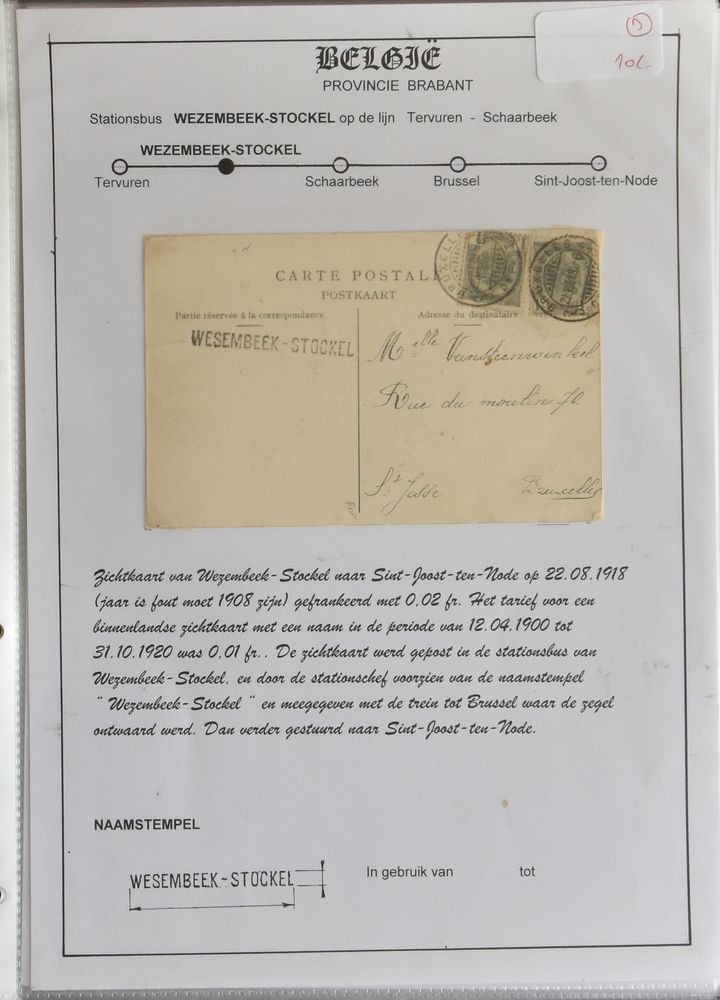 10€-
BELGIË
PROVINCIE BRABANT
Stationsbus WEZEMBEEK-STOCKEL op de lijn Tervuren - Schaarbeek
WEZEMBEEK-STOCKEL
Tervuren Schaarbeek Brussel Sint-Joost-ten-Node
CARTE POSTALE
POSTKAART
Partie réservée à la correspondance
Adresse du destinataire
WESEMBEEK-STOCKEL
Melle Vansteenwinkel
Rue du moulin 70.
St Josse
Bruxelles
Zichtkaart van Wezembeek-Stockel naar Sint-Joost-ten-Node op 22.08.1918
(jaar is fout moet 1908 zijn) gefrankeerd met 0,02 fr. Het tarief voor een
binnenlandse zichtkaart met een naam in de periode van 12.04.1900 tot
31.10.1920 was 0,01 fr.. De zichtkaart werd gepost in de stationsbus van
Wezembeek-Stockel, en door de stationschef voorzien van de naamstempel
" Wezembeek-Stockel " en meegegeven met de trein tot Brussel waar de zegel
ontwaard werd. Dan verder gestuurd naar Sint-Joost-ten-Node.
NAAMSTEMPEL
WESEMBEEK-STOCKEL
In gebruik van tot